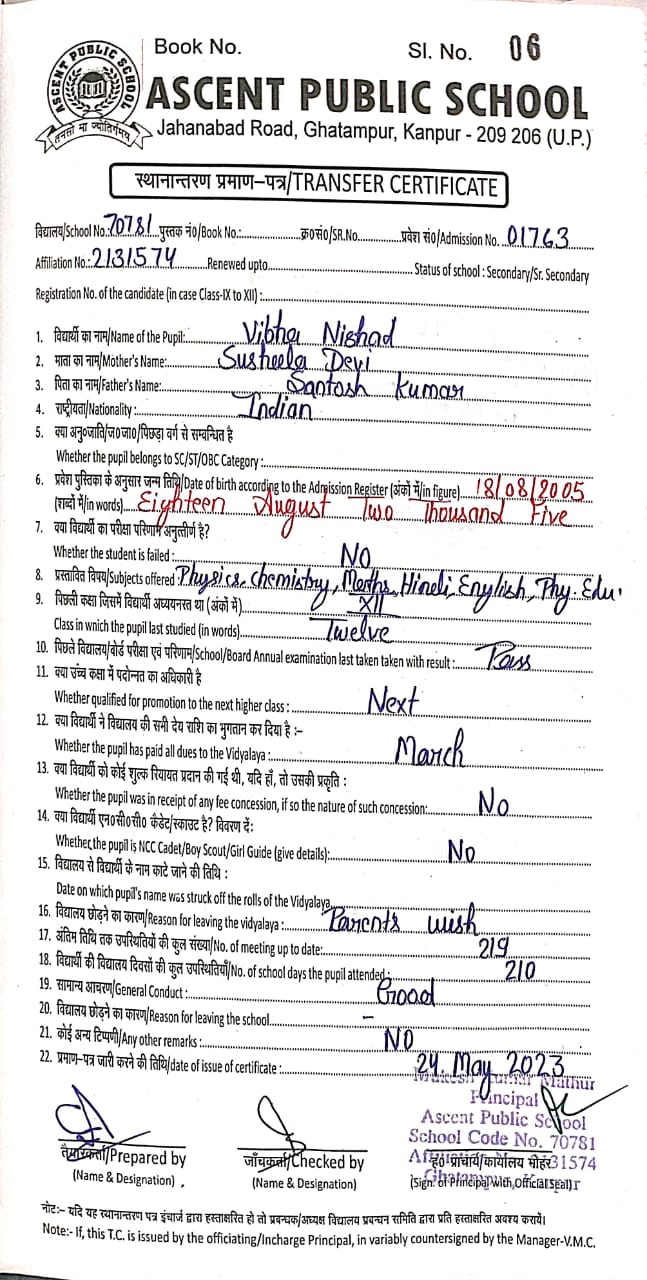 Book No. Sl. No. 06
ASCENT PUBLIC SCHOOL
तमसो मा ज्योतिर्गमय
ASCENT PUBLIC SCHOOL
Jahanabad Road, Ghatampur, Kanpur - 209 206 (U.P.)
स्थानान्तरण प्रमाण–पत्र/TRANSFER CERTIFICATE
विद्यालय/School No.: 70781 पुस्तक नं0/Book No.: क्र0सं0/SR.No. प्रवेश सं0/Admission No. 01763
Affiliation No.: 2131574 Renewed upto Status of school : Secondary/Sr. Secondary
Registration No. of the candidate (in case Class-IX to XII) :
1. विद्यार्थी का नाम/Name of the Pupil: Vibha Nishad
2. माता का नाम/Mother's Name: Susheela Devi
3. पिता का नाम/Father's Name: Santosh Kumar
4. राष्ट्रीयता/Nationality : Indian
5. क्या अनु0जाति/ज0जा0/पिछड़ा वर्ग से सम्बन्धित है
Whether the pupil belongs to SC/ST/OBC Category :
6. प्रवेश पुस्तिका के अनुसार जन्म तिथि/Date of birth according to the Admission Register (अंकों में/in figure) 18/08/2005
(शब्दों में/in words) Eighteen August Two Thousand Five
7. क्या विद्यार्थी का परीक्षा परिणाम अनुत्तीर्ण है?
Whether the student is failed : NO
8. प्रस्तावित विषय/Subjects offered : Physics, chemistry, Maths, Hindi, English, Phy. Edu.
9. पिछली कक्षा जिसमें विद्यार्थी अध्ययनरत था (अंकों में) XII
Class in wnich the pupil last studied (in words) Twelve
10. पिछले विद्यालय/बोर्ड परीक्षा एवं परिणाम/School/Board Annual examination last taken taken with result : Pass
11. क्या उच्च कक्षा में पदोन्नत का अधिकारी है
Whether qualified for promotion to the next higher class : Next
12. क्या विद्यार्थी ने विद्यालय की सभी देय राशि का भुगतान कर दिया है :–
Whether the pupil has paid all dues to the Vidyalaya : March
13. क्या विद्यार्थी को कोई शुल्क रियायत प्रदान की गई थी, यदि हाँ, तो उसकी प्रकृति :
Whether the pupil was in receipt of any fee concession, if so the nature of such concession: No
14. क्या विद्यार्थी एन0सी0सी0 कैडेट/स्काउट है? विवरण दें:
Whether the pupil is NCC Cadet/Boy Scout/Girl Guide (give details): No
15. विद्यालय से विद्यार्थी के नाम काटे जाने की तिथि :
Date on which pupil's name was struck off the rolls of the Vidyalaya
16. विद्यालय छोड़ने का कारण/Reason for leaving the vidyalaya : Parents wish
17. अंतिम तिथि तक उपस्थितियों की कुल संख्या/No. of meeting up to date: 219
18. विद्यार्थी की विद्यालय दिवसों की कुल उपस्थितियाँ/No. of school days the pupil attended : 210
19. सामान्य आचरण/General Conduct : Good
20. विद्यालय छोड़ने का कारण/Reason for leaving the school –
21. कोई अन्य टिप्पणी/Any other remarks : NO
22. प्रमाण–पत्र जारी करने की तिथि/date of issue of certificate : 24. May 2023
Mathur
Principal
Ascent Public School
School Code No. 70781
31574
तैयारकर्ता/Prepared by जाँचकर्ता/Checked by ह0 प्राचार्य/कार्यालय मोहर
(Name & Designation) (Name & Designation) (Sign. of Principal with Official Seal)
नोट:– यदि यह स्थानान्तरण पत्र इंचार्ज द्वारा हस्ताक्षरित हो तो प्रबन्धक/अध्यक्ष विद्यालय प्रबन्धन समिति द्वारा प्रति हस्ताक्षरित अवश्य करायें।
Note:- If, this T.C. is issued by the officiating/Incharge Principal, in variably countersigned by the Manager-V.M.C.